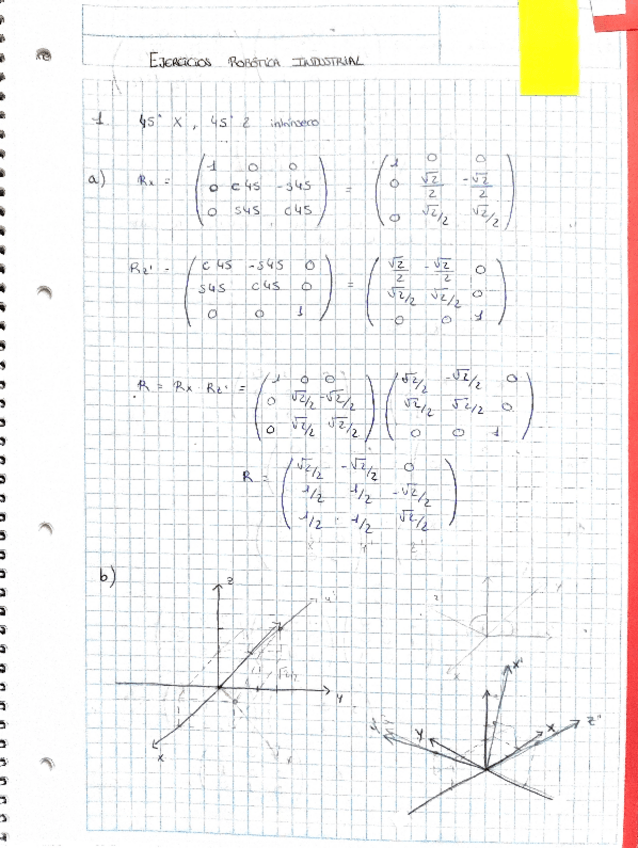 EJERCICIOS ROBÓTICA INDUSTRIAL
1. 45° X, 45° Z intrínseco
a) Rx = ( 1 0 0 ; 0 c45 -s45 ; 0 s45 c45 ) = ( 1 0 0 ; 0 √2/2 -√2/2 ; 0 √2/2 √2/2 )
Rz' = ( c45 -s45 0 ; s45 c45 0 ; 0 0 1 ) = ( √2/2 -√2/2 0 ; √2/2 √2/2 0 ; 0 0 1 )
R = Rx Rz' = ( 1 0 0 ; 0 √2/2 -√2/2 ; 0 √2/2 √2/2 ) ( √2/2 -√2/2 0 ; √2/2 √2/2 0 ; 0 0 1 )
R = ( √2/2 -√2/2 0 ; 1/2 1/2 -√2/2 ; 1/2 1/2 √2/2 )
X' Y' Z'
b)
Z
X'
√2/2
Y
X
X
X''
Y
X
Z''